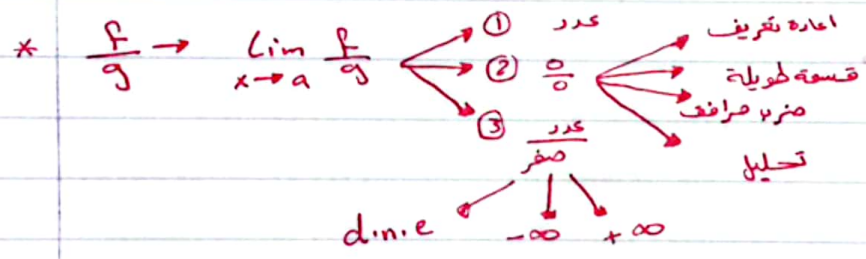 * f/g → Lim x→a f/g ① عدد
② 0/0
③ عدد/صفر
اعادة تعريف
قسمة طويلة
ضرب مرافق
تحليل
d.n.e -∞ +∞